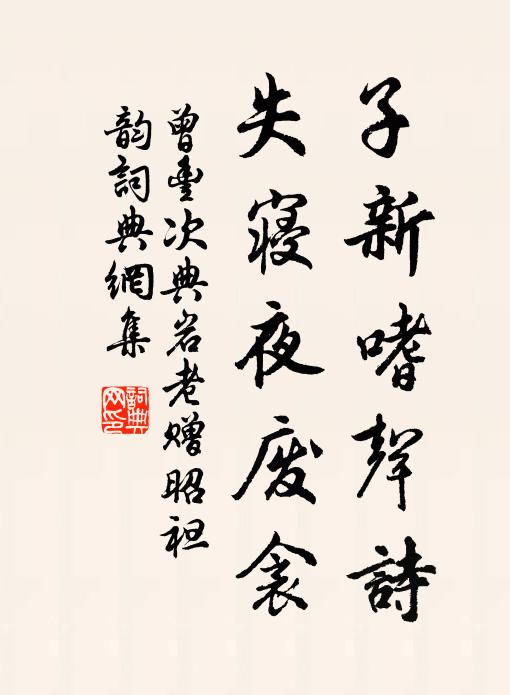 子新嗜聲詩
失寢夜废衾
曾豐次典岩老贈昭祖
韵詞典網集
詞典网印